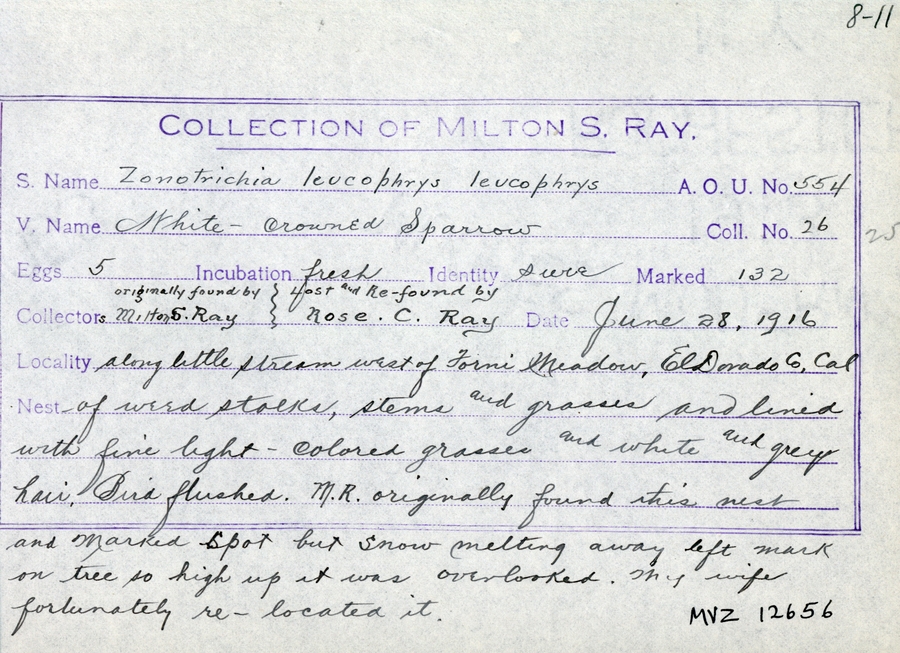 8-11
COLLECTION OF MILTON S. RAY.
S. Name Zonotrichia leucophrys leucophrys A. O. U. No. 554
V. Name White-crowned Sparrow Coll. No. 26 25
Eggs 5 Incubation fresh Identity sure Marked 132
originally found by } Lost and Re-found by
Collectors Milton S. Ray } Rose. C. Ray Date June 28, 1916
Locality along little stream west of Forni Meadow, El Dorado Co, Cal
Nest of weed stalks, stems and grasses and lined
with fine light-colored grasses and white and grey
hair, Bird flushed. M.R. originally found this nest
and marked spot but snow melting away left mark
on tree so high up it was overlooked. My wife
fortunately re-located it.
MVZ 12656